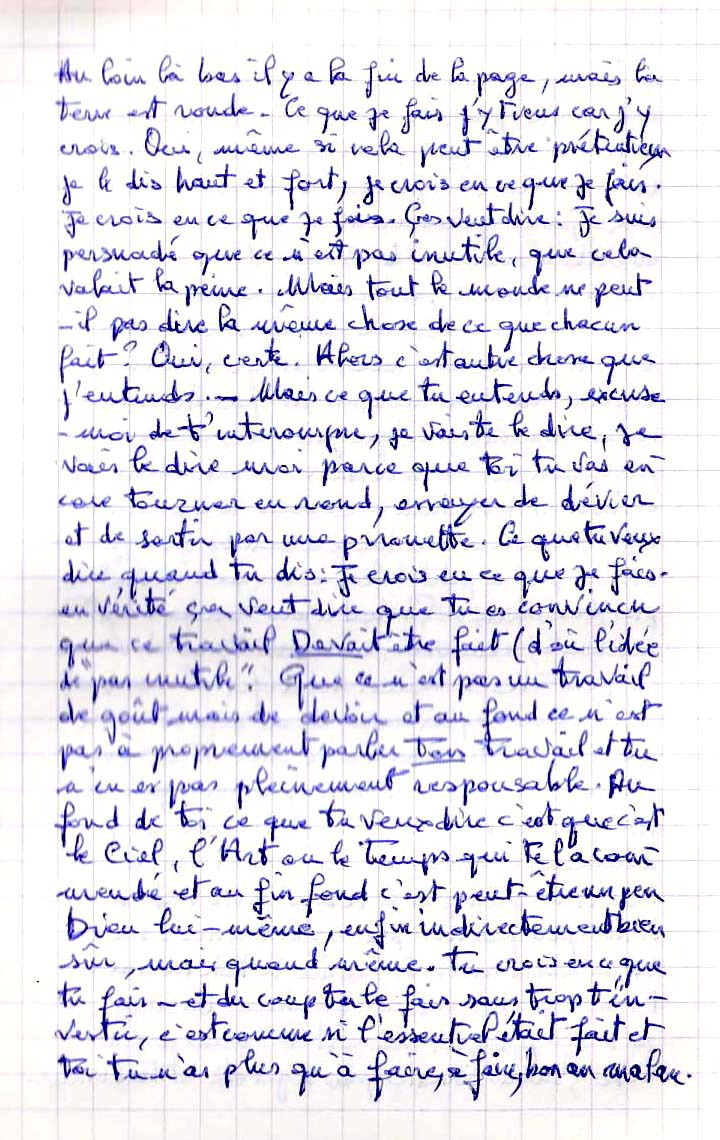 Au loin là bas il y a la fin de la page, mais la
terre est ronde - Ce que je fais j'y tiens car j'y
crois. Oui, même si cela peut être prétentieux
je le dis haut et fort, je crois en ce que je fais.
Je crois en ce que je fais. Ça veut dire : Je suis
persuadé que ce n'est pas inutile, que cela
valait la peine. Mais tout le monde ne peut
-il pas dire la même chose de ce que chacun
fait ? Oui, certe. Alors c'est autre chose que
j'entends. - Mais ce que tu entends, excuse
-moi de t'interompre, je vais te le dire, je
vais le dire moi parce que toi tu vas en-
core tourner en rond, essayer de dévier
et de sortir par une pirouette. Ce que tu veux
dire quand tu dis : Je crois en ce que je fais.
en vérité ça veut dire que tu es convaincu
que ce travail Devait être fait (d'où l'idée
de "pas inutile". Que ce n'est pas un travail
de goût mais de devoir et au fond ce n'est
pas à proprement parler ton travail et tu
n'en es pas pleinement responsable. Au
fond de toi ce que tu veux dire c'est que c'est
le Ciel, l'Art ou le temps qui te l'a com-
mandé et au fin fond c'est peut-être un peu
Dieu lui-même, enfin indirectement bien
sûr, mais quand même. Tu crois en ce que
tu fais - et du coup tu le fais sans trop t'in-
vestir, c'est comme si l'essentiel était fait et
toi tu n'as plus qu'à faire, à faire, bon an mal an.